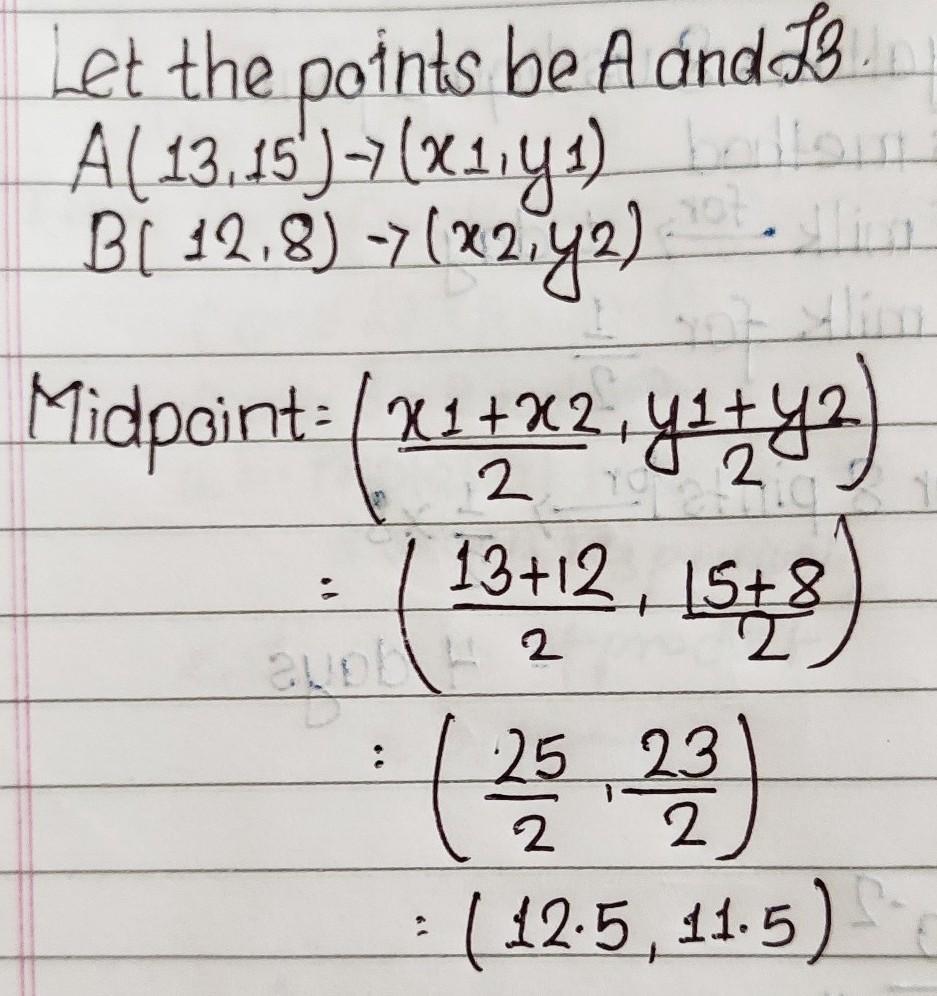 Let the points be A and B.
A(13,15)→(x1,y1)
B(12,8)→(x2,y2)
Midpoint=(x1+x2/2, y1+y2/2)
=(13+12/2, 15+8/2)
:(25/2, 23/2)
=(12.5, 11.5)